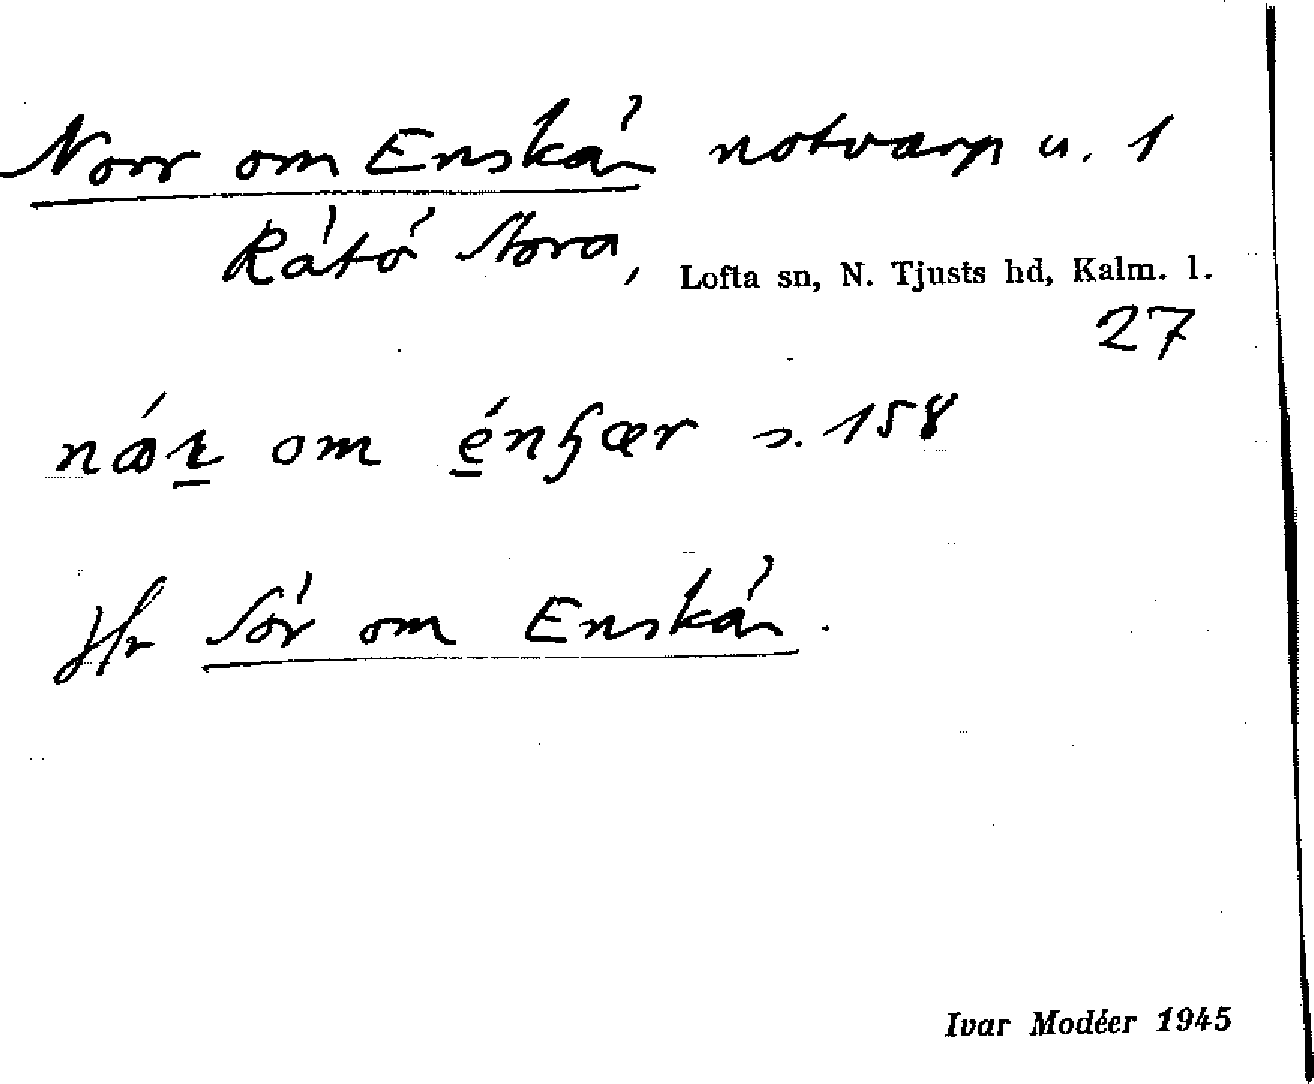 Norr om Enskär notvarp u. 1
Rätö Stora, Lofta sn, N. Tjusts hd, Kalm. l.
27
om s. 158
Jfr Sör om Enskär.
Ivar Modéer 1945